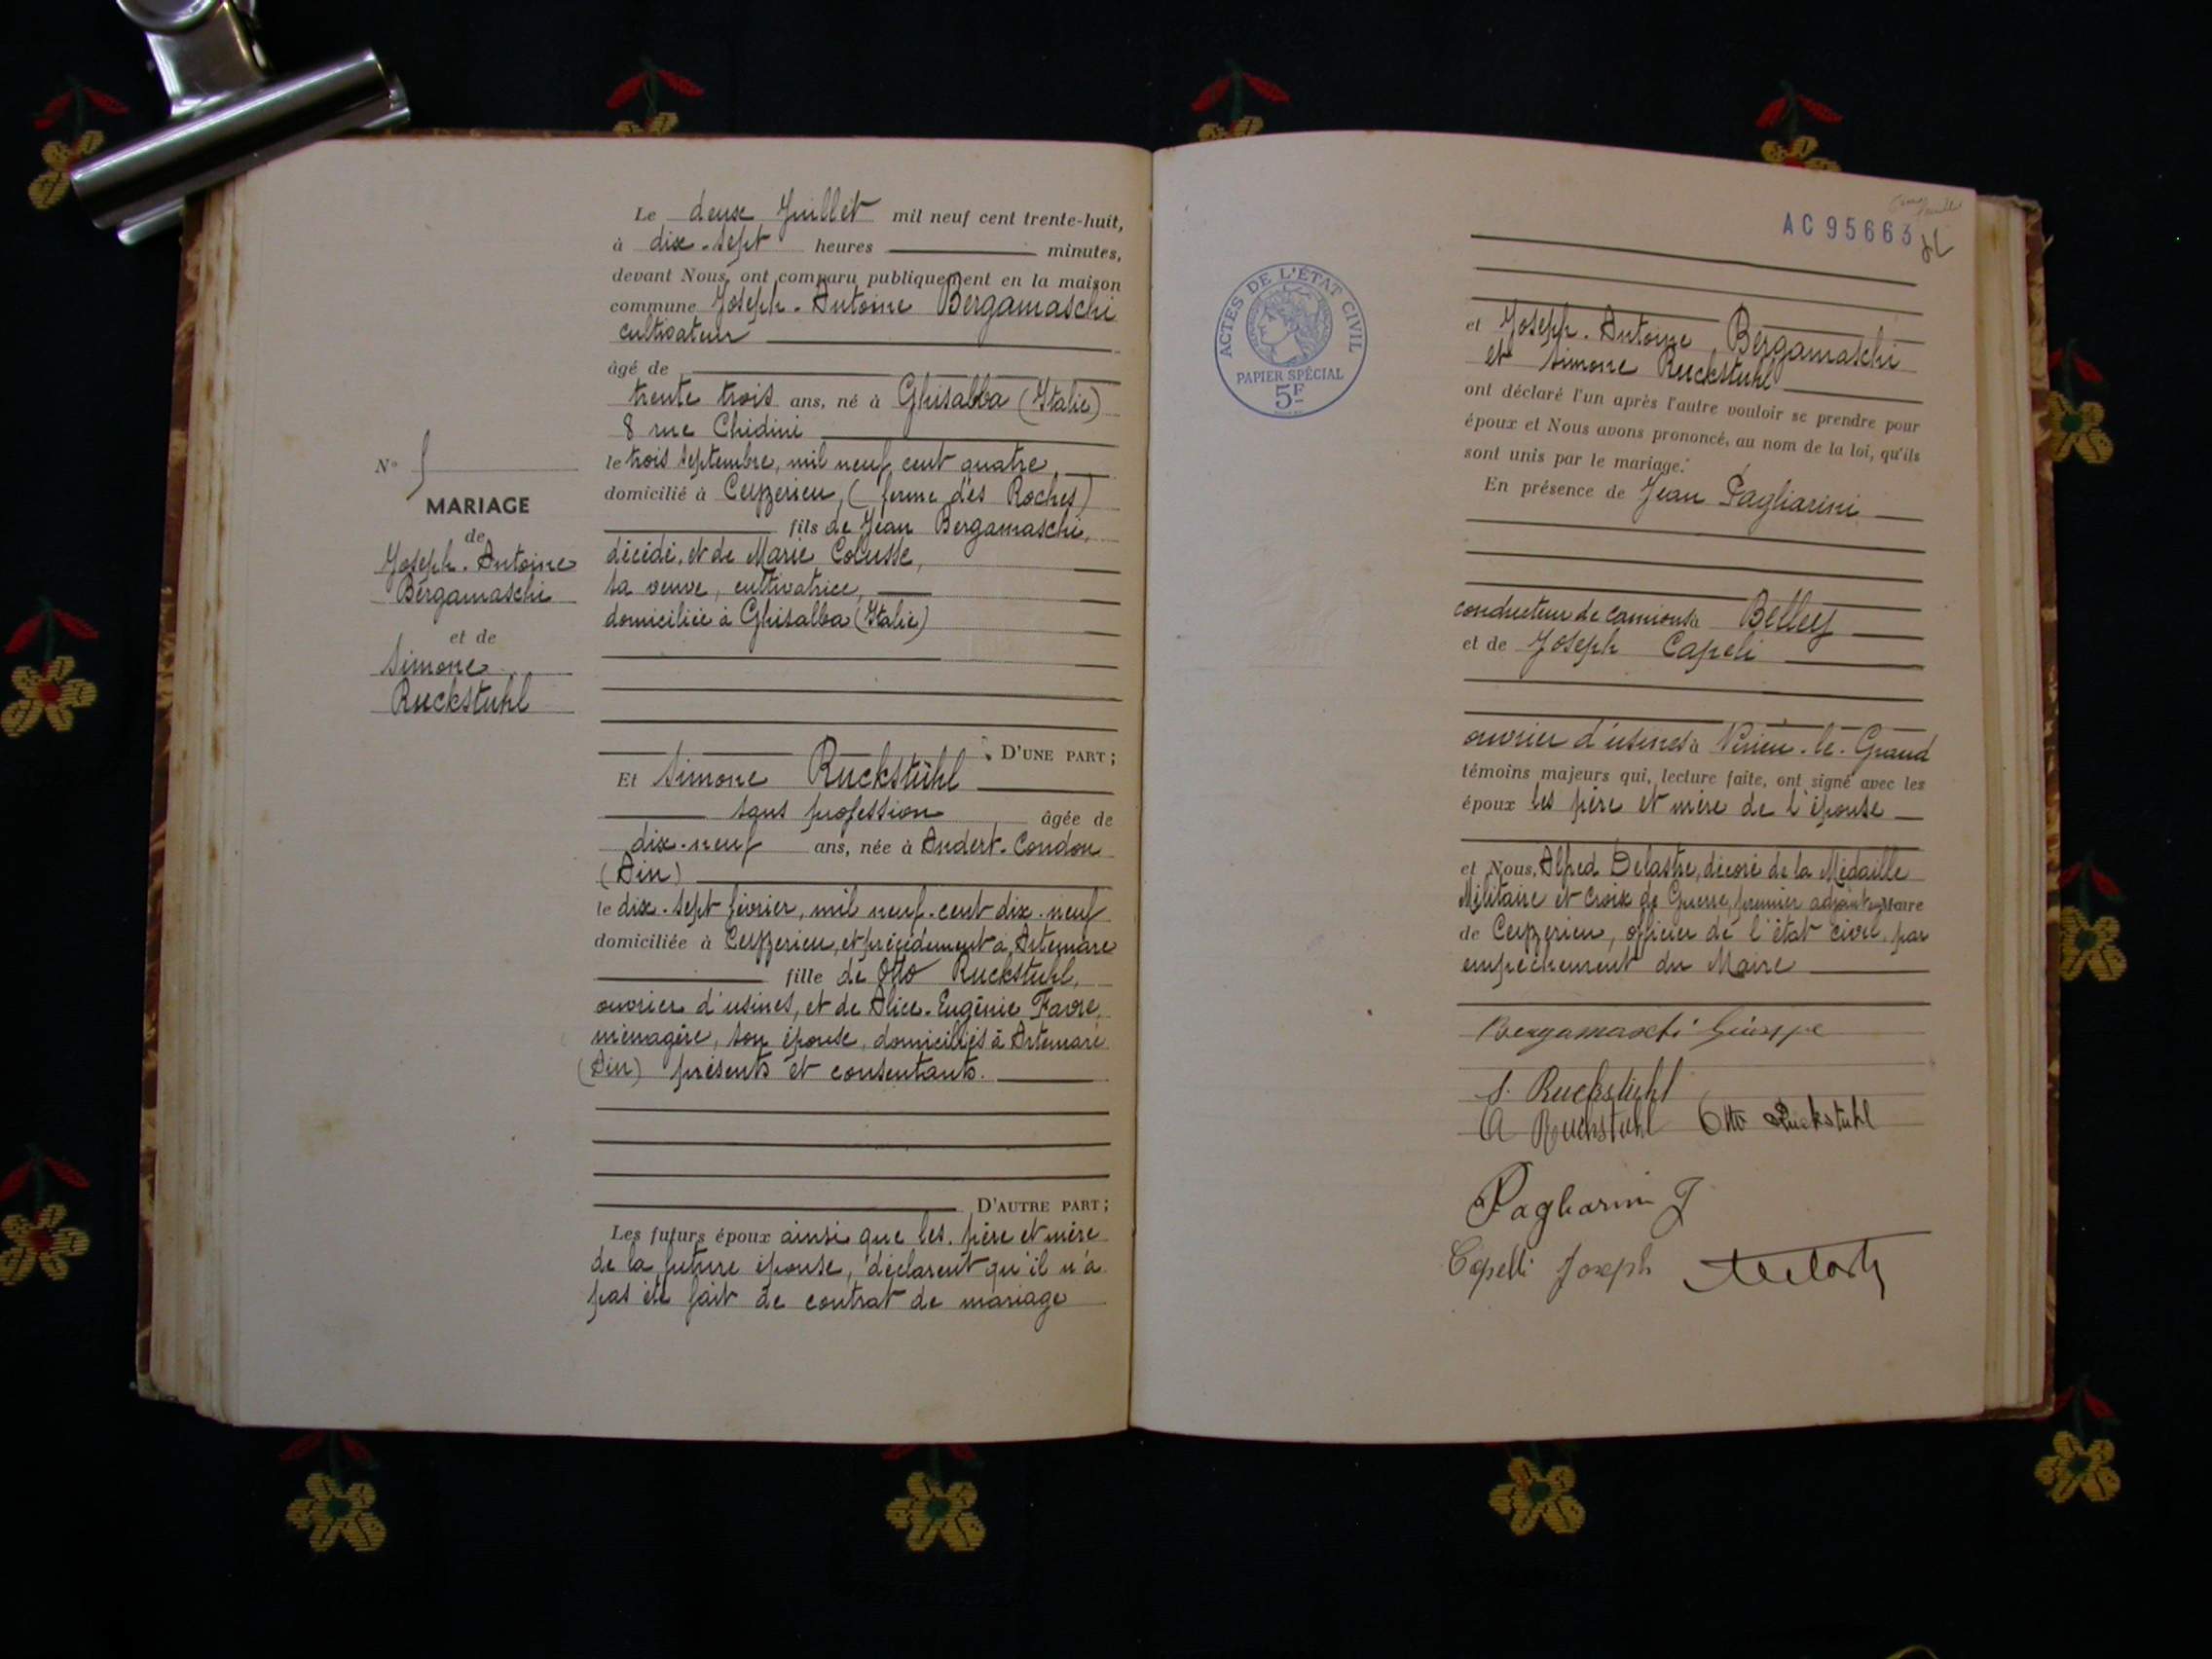 Le deux Juillet mil neuf cent trente-huit,
à dix-sept heures minutes,
devant Nous, ont comparu publiquement en la maison
commune Joseph-Antoine Bergamaschi
cultivateur
âgé de
trente trois ans, né à Ghisalba (Italie)
8 rue Chidini
le trois septembre, mil neuf cent quatre,
domicilié à Ceyzerieu, (ferme des Roches)
fils de Jean Bergamaschi,
décédé, et de Marie Colusse,
sa veuve, cultivatrice,
domiciliée à Ghisalba (Italie)
D'UNE PART;
Et Simone Ruckstühl
sans profession âgée de
dix-neuf ans, née à Andert-Condon
(Ain)
le dix-sept février, mil neuf-cent dix-neuf
domiciliée à Ceyzerieu, et précédemment à Artemare
fille de Otto Ruckstuhl,
ouvrier d'usines, et de Alice-Eugénie Favre,
ménagère, son épouse, domiciliés à Artemare
(Ain) présents et consentants.
D'AUTRE PART;
Les futurs époux ainsi que les père et mère
de la future épouse, déclarent qu'il n'a
pas été fait de contrat de mariage
N°
MARIAGE
de
Joseph-Antoine
Bergamaschi
et de
Simone
Ruckstuhl
AC 95663
ACTES DE L'ÉTAT CIVIL
PAPIER SPÉCIAL
5F
et Joseph-Antoine Bergamaschi
et Simone Ruckstuhl
ont déclaré l'un après l'autre vouloir se prendre pour
époux et Nous avons prononcé, au nom de la loi, qu'ils
sont unis par le mariage.
En présence de Jean Pagliarini
conducteur de camions à Belley
et de Joseph Capeli
ouvrier d'usines à Virieu-le-Grand
témoins majeurs qui, lecture faite, ont signé avec les
époux les père et mère de l'épouse
et Nous, Alfred Delastre, décoré de la Médaille
Militaire et Croix de Guerre, premier adjoint Maire
de Ceyzerieu, officier de l'état civil, par
empêchement du Maire
Bergamaschi Giuseppe
S. Ruckstühl
A Ruckstuhl Otto Ruckstuhl
Pagliarini J
Capelli Joseph